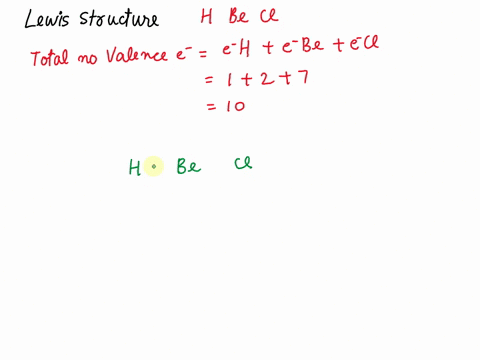 Lewis structure H Be Cl
Total no Valence e⁻ = e⁻H + e⁻Be + e⁻Cl
= 1 + 2 + 7
= 10
H · Be Cl